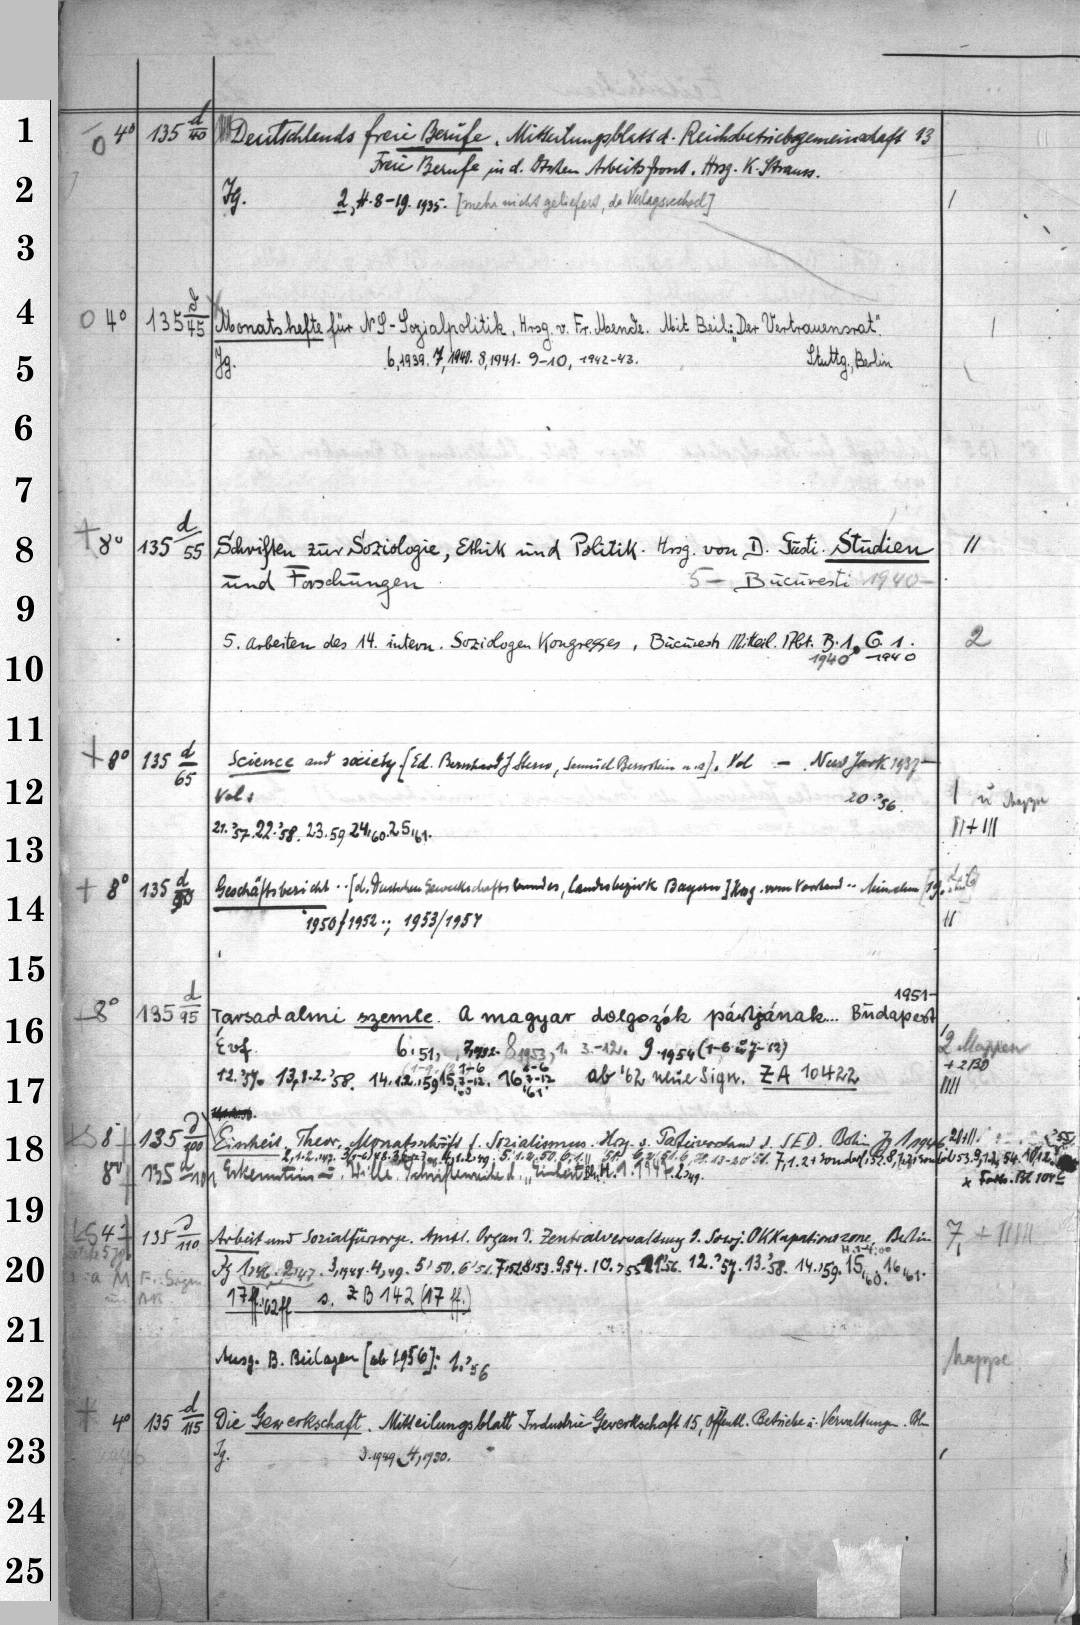 1
0 4° 135 d/40 Deutschlands freie Berufe. Mitteilungsblatt d. Reichsbetriebsgemeinschaft 13
Freie Berufe in d. Dtschen Arbeitsfront. Hrsg. K. Strauss.
2
Jg. 2, H. 8-19. 1935. [mehr nicht geliefert, da
3
4
0 4° 135 d/45 Monatshefte für NS-Sozialpolitik. Hrsg. v. Fr. Mende. Mit Beil.: "Der Vertrauensrat".
5
Jg. 6,1939. 7,1940. 8,1941. 9-10, 1942-43. Stuttg., Berlin
6
7
8
+ 8° 135 d/55 Schriften zur Soziologie, Ethik und Politik. Hrsg. von D. Gusti. Studien II
und Forschungen 5- Bucuresti 1940-
9
5. Arbeiten des 14. intern. Soziologen Kongresses, Bucuresti Mitteil. Abt. B. 1, C. 1. 2
10
1940 1940
11
+ 8° 135 d/65 Science and society. [Ed. Bernhard J Stern, Samuel Bernstein u.a]. Vol - New York 1937-
12
Vol: 20.'56. I u Mappe
21.'57. 22.'58. 23.59 24,'60. 25,'61. II+III
13
+ 8° 135 d/90 Geschäftsbericht .. [d. Deutschen Gewerkschaftsbundes, Landesbezirk Bayern] Hrsg. vom Vorstand .. München
14
1950/1952..; 1953/1957 II
15
1951-
8° 135 d/95 Tarsadalmi szemle. A magyar dolgozók pártjának... Budapest
16
Évf. 6.51, 7,1952. 8,1953, 1. 3.-12. 9.1954 (1-6 u 7-12) 2 Mappen
+ 2 BD
17
12.'57. 13,1-2.'58. 14.1.2.'59 15, 16 ab '62 neue Sign. ZA 10422 IIII
18
8° 135 d/100 Einheit. Theor. Monatsschrift f. Sozialismus. Hrsg. v. Parteivorstand d. SED. Berlin Jg 1,1946
8° 135 Erkenntnis u. Wille. Schriftenreihe d. "Einheit" H. 1. 1947.
19
4° 135 d/110 Arbeit und Sozialfürsorge. Amtl. Organ d. Zentralverwaltung d. Sowj. OKKupationszone, Berlin 7, + IIIII
20
Jg 1,'46. 2,'47. 3,1948. 4,'49. 5'50. 6'51. 7,'52. 8,'53. 9,54. 10.'55 11'56. 12.'57. 13.'58. 14.'59. 15,'60. 16,'61.
17 ff. '62 ff s. ZB 142 (17 ff.)
21
Ausg. B. Beilagen [ab 1956]: 1.'56 Mappe
22
+ 4° 135 d/115 Die Gewerkschaft. Mitteilungsblatt Industrie Gewerkschaft 15, Öffentl. Betriebe u. Verwaltungen. Bln
23
Jg. 3.1949. 4,1950.
24
25